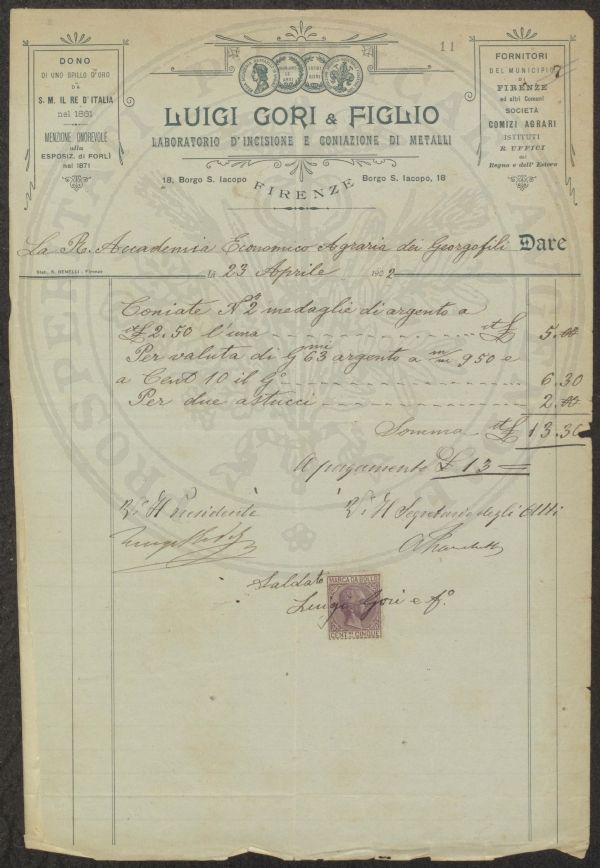 11
DONO
DI UNO SPILLO D'ORO
DA
S. M. IL RE D'ITALIA
nel 1861
MENZIONE ONOREVOLE
alla
ESPOSIZ. DI FORLÌ
nel 1871
LUIGI GORI & FIGLIO
LABORATORIO D'INCISIONE E CONIAZIONE DI METALLI
18, Borgo S. Iacopo
FIRENZE
Borgo S. Iacopo, 18
FORNITORI
DEL MUNICIPIO
DI
FIRENZE
ed altri Comuni
SOCIETÀ
COMIZI AGRARI
ISTITUTI
R. UFFICI
del
Regno e dell'Estero
La R. Accademia Economico Agraria dei Georgofili Dare
Stab. S. BENELLI - Firenze
li 23 Aprile 1902
Coniate N° 2 medaglie di argento a
it£ 2.50 l'una it£ 5.00
Per valuta di Gmi 63 argento a m/m 950 e
a Cent 10 il G° 6.30
Per due astucci 2.00
Somma it£ 13.30
A pagamento £ 13 =
V° Il Presidente
V° Il Segretario degli Atti
Saldato
Luigi Gori e f°
MARCA DA BOLLO
CENT.MI CINQUE